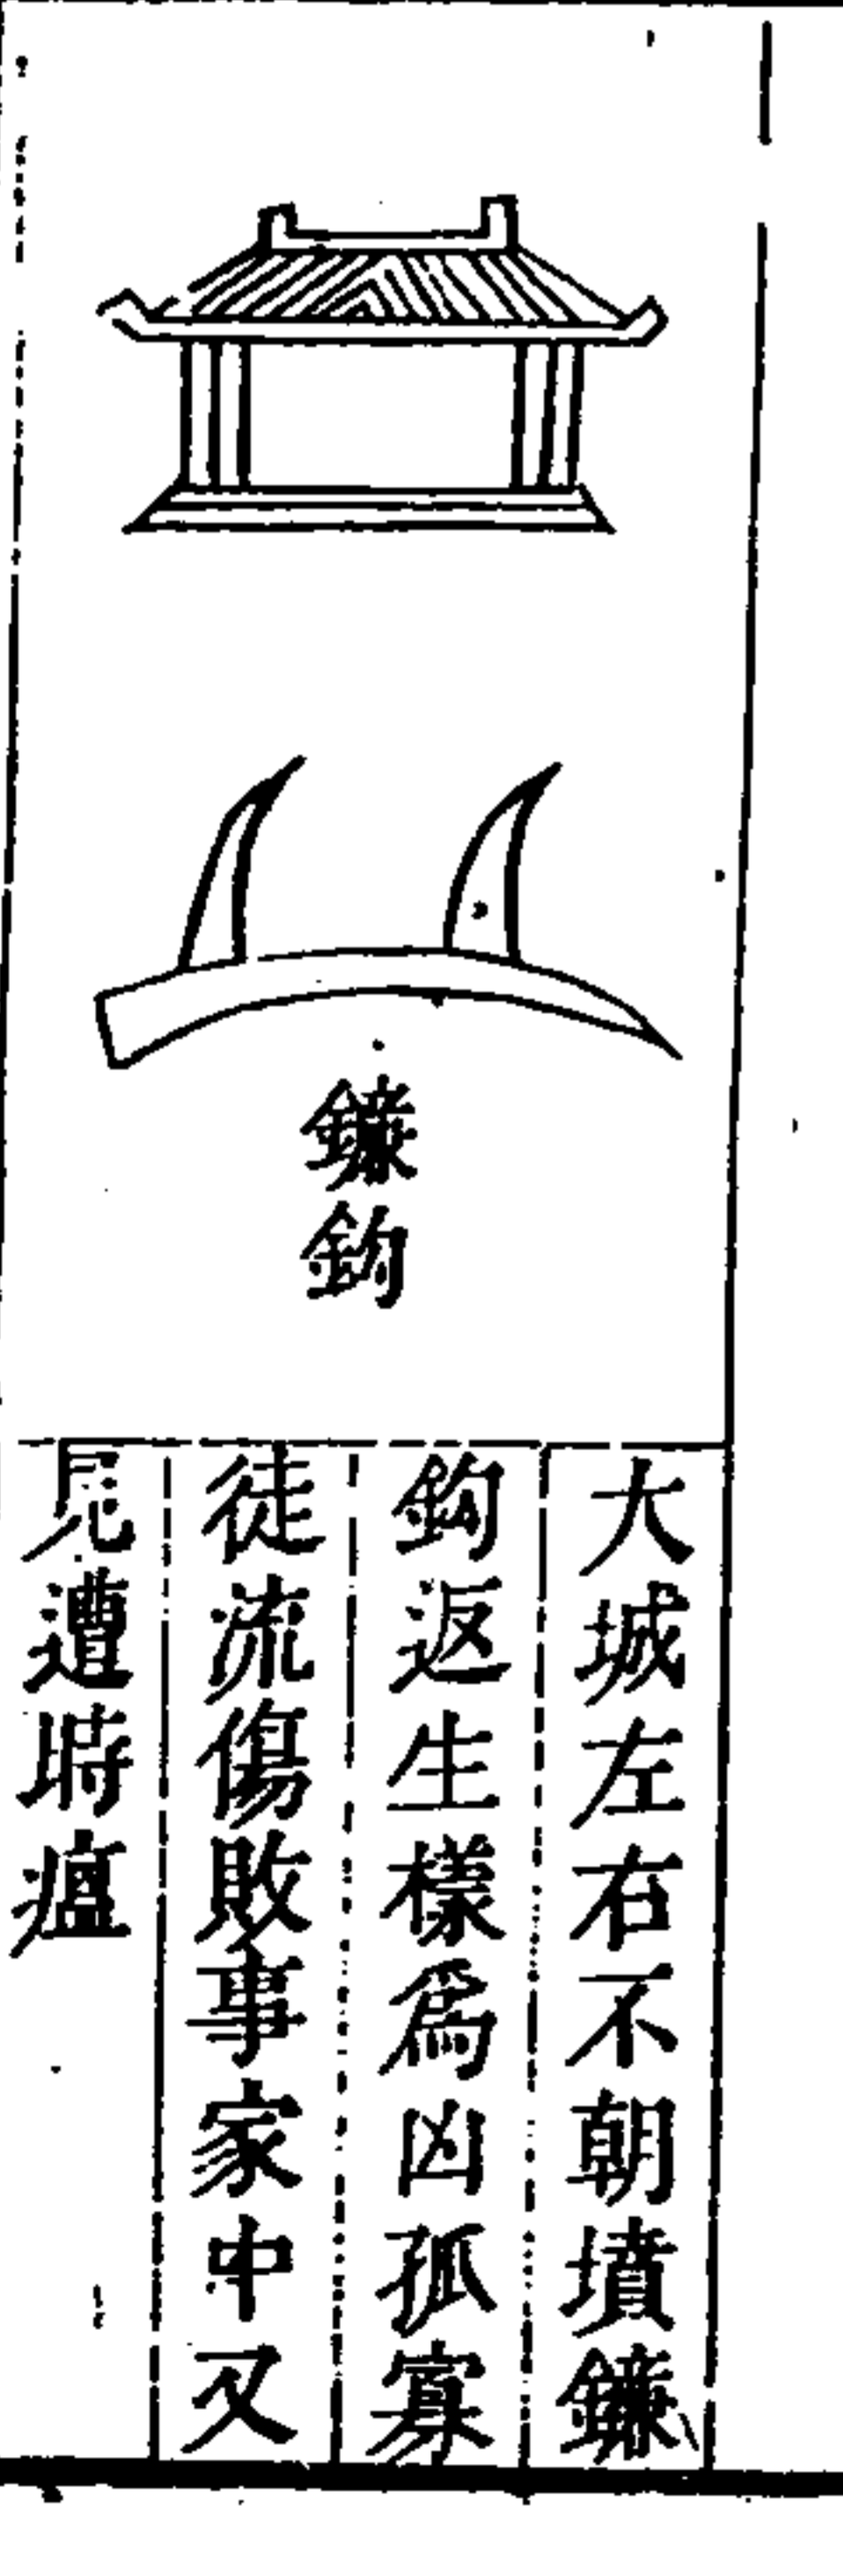 鐮鈎
大城左右不朝墳鐮
鈎返生樣爲凶孤寡
徒流傷敗事家中又
見遭時瘟